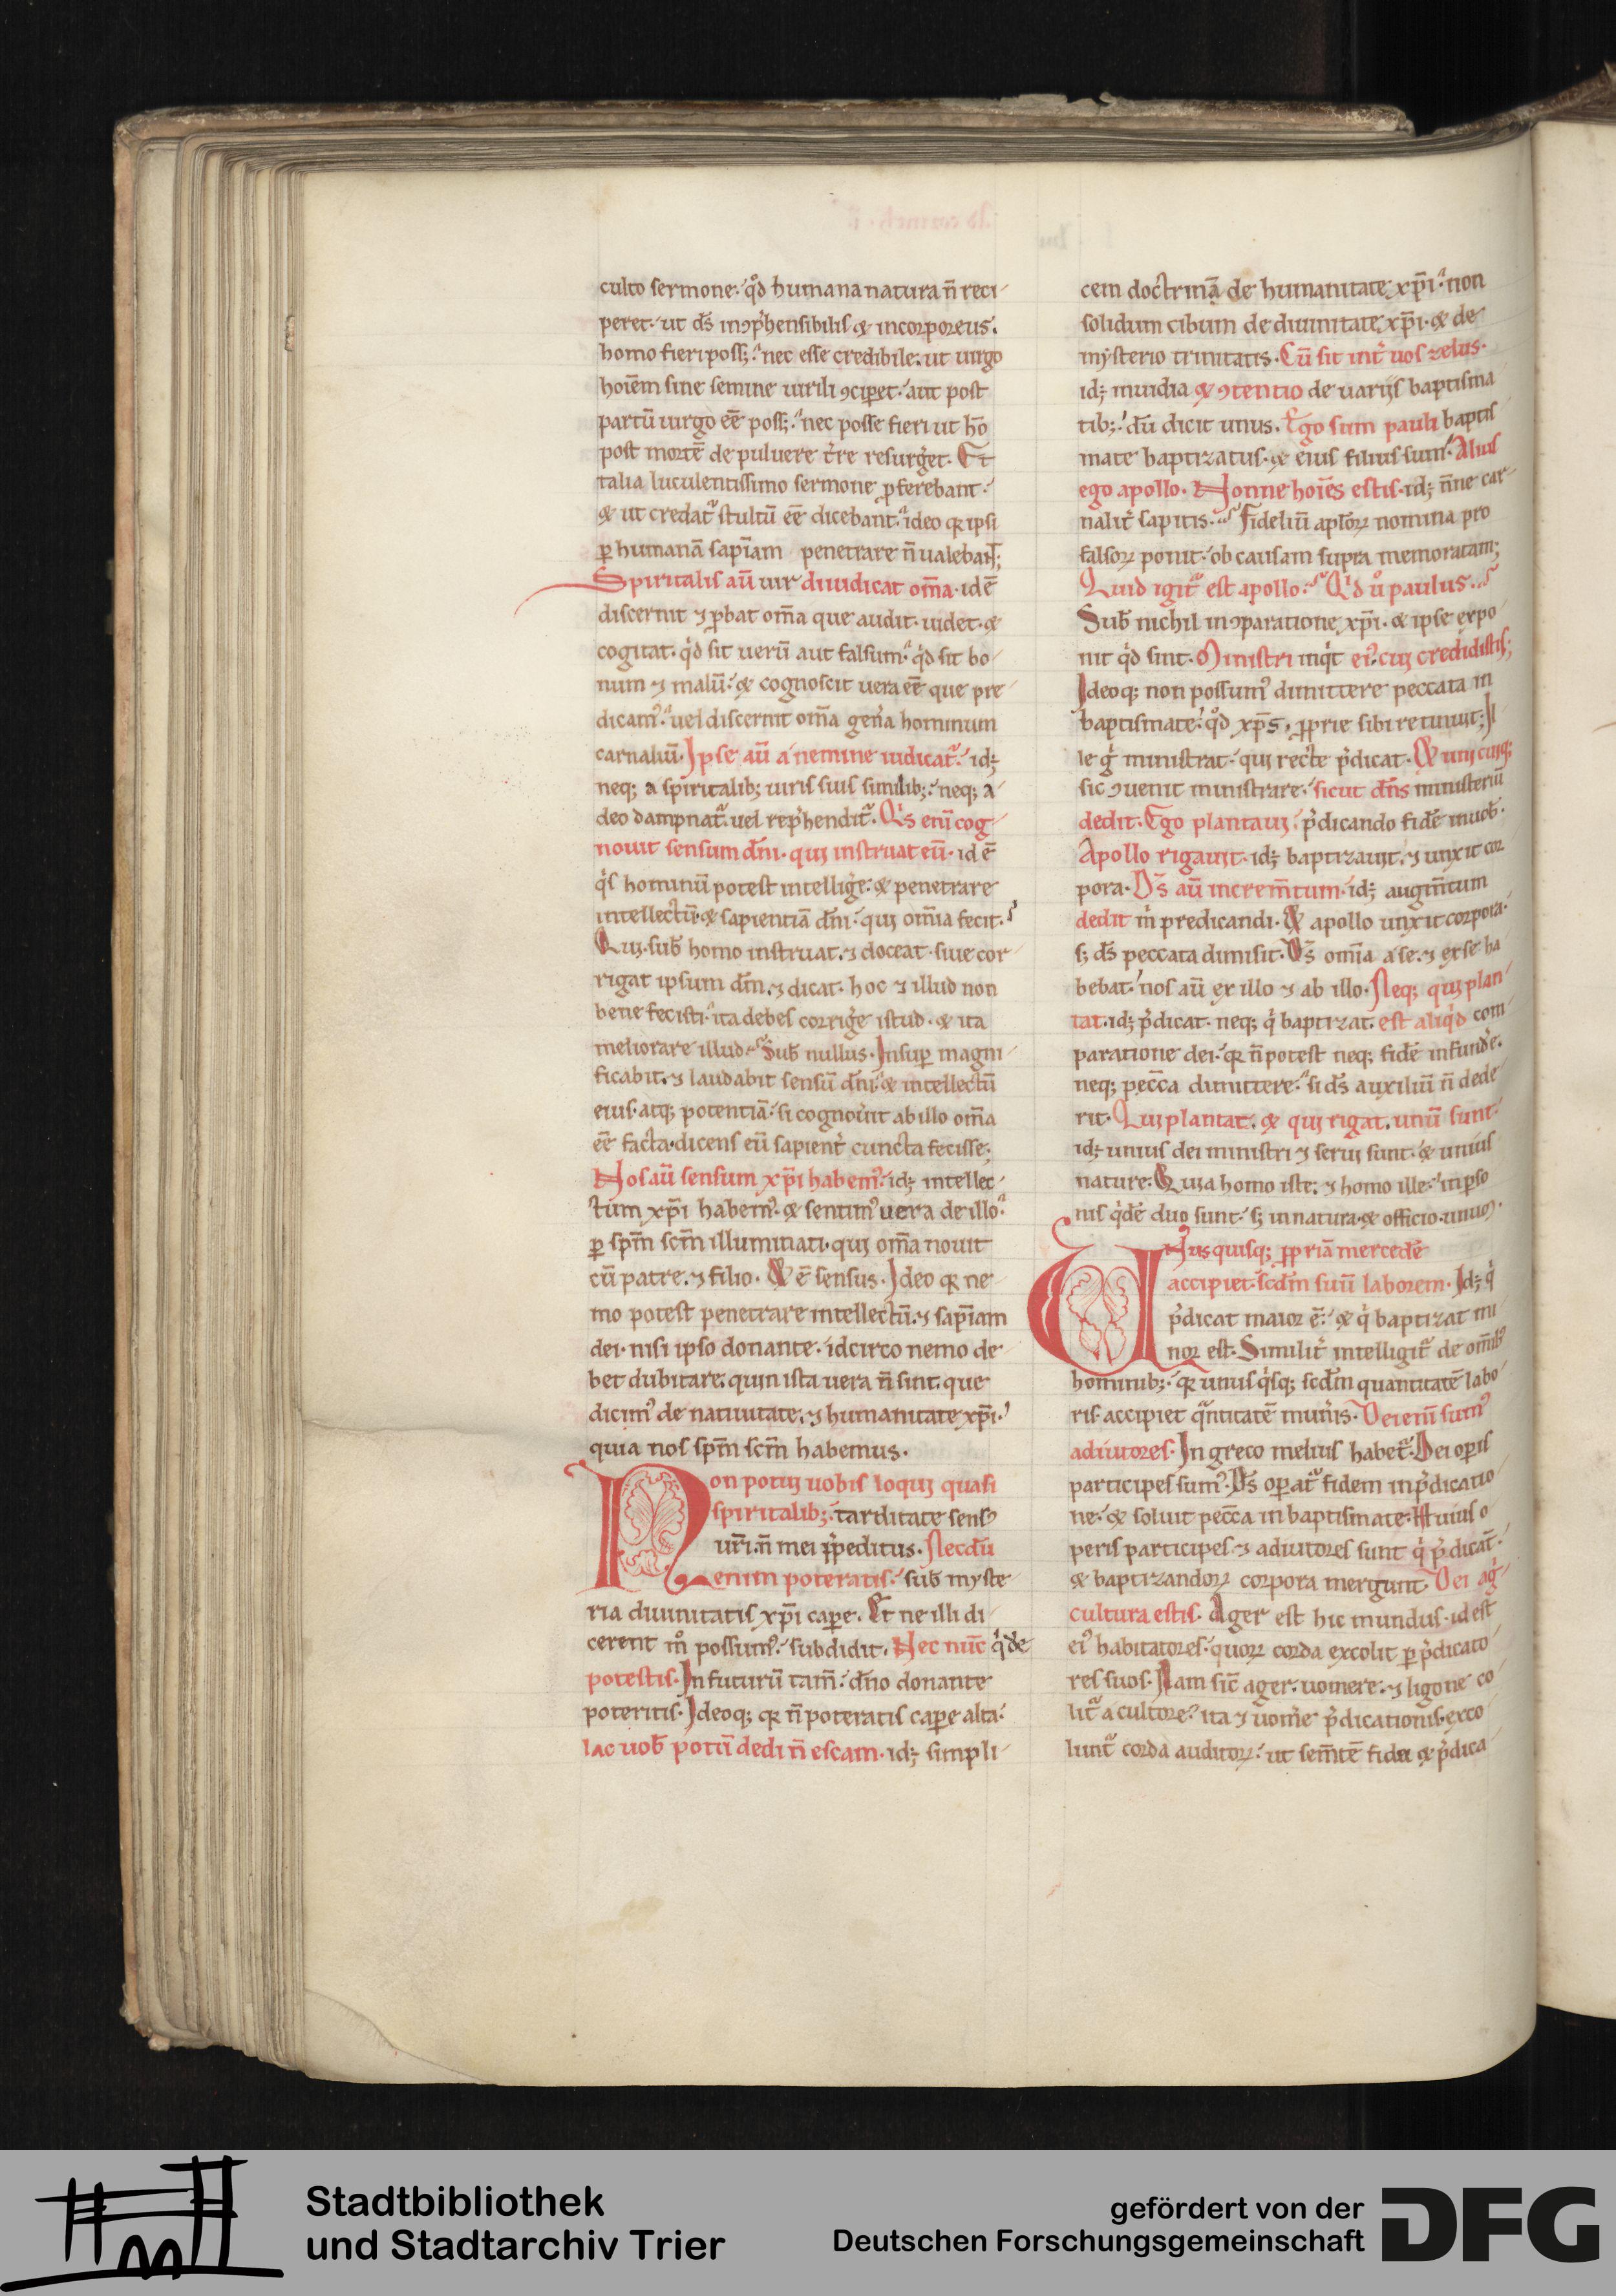 culto sermone. qđ humana natura n̄ reci-
peret. ut d̄s inↄp̄hensibilis & incorporeus.
homo fieri poss;. nec esse credibile. ut uirgo
hoīem sine semine uirili ↄciꝑet. aut post
partū uirgo eē poss;. nec posse fieri ut hō
post mortē de puluere t̄re resurḡet. Et
talia luculentissimo sermone ꝓferebant.
& ut credat᷑ stultū eē dicebant. ideo qr ipsi
ꝑ humanā sapīam penetrare n̄ ualebant;
Spiritalis aū uir diiudicat om̄a. id ē
discernit ⁊ ꝓbat om̄a que audit. uidet. &
cogitat. qd sit uerū aut falsum. qd sit bo-
num ⁊ malū. & cognoscit uera eē que pre-
dicam᷒. uel discernit om̄a gen̄a hominum
carnaliū. Ipse aū a nemine iudicat᷑. id;
neq; a spiritalib; uiris suis similib;. neq; a
deo dampnat᷑. uel rep̄hendit᷑. Qis enī cog-
nouit sensum dn̄i. qui instruat eū. id ē
qis hominū potest intelliḡe. & penetrare
intellectū. & sapientiā dn̄i. qui om̄ia fecit.
Qui. sub̄ homo instruat. ⁊ doceat. siue cor-
rigat ipsum dn̄m. ⁊ dicat. hoc ⁊ illud non
bene fecisti. ita debes corriḡe istud. & ita
meliorare illud. Sub̄ nullus. Insuꝑ magni-
ficabit. ⁊ laudabit sensū dn̄i. & intellectū
eius. atq; potentiā. si cognoūit ab illo om̄a
eē facta. dicens eū sapient̄ cuncta fecisse;
Nos aū sensum xp̄i habem᷒. id; intellec-
tum xp̄i habem᷒. & sentim᷒ uera de illo.
ꝑ sp̄m sc̄m illuminati. qui om̄a nouit
cū patre. ⁊ filio. & ē sensus. Ideo qr ne-
mo potest penetrare intellectū. ⁊ sapīam
dei. nisi ipso donante. idcirco nemo de-
bet dubitare. quin ista uera n̄ sint. que
dicim᷒ de natiuitate. ⁊ humanitate xp̄i.
quia nos sp̄m sc̄m habemus.
Non potui uobis loqui quasi
spiritalib;. tarditate sens᷒
ur̄i. n̄ mei p̄peditus. Necdū
enim poteratis. sub̄ myste-
ria diuinitatis xp̄i caꝑe. Et ne illi di-
cerent m° possum᷒. subdidit. Nec nūc qide
potestis. In futurū tam̄. dn̄o donante
poteritis. Ideoq; qr n̄ poteratis caꝑe alta.
lac uob̄ potū dedi n̄ escam. id; simpli-
cem doctrinā de humanitate xp̄i. non
solidum cibum de diuinitate xp̄i. & de
mysterio trinitatis. Cū sit int̄ uos zelus.
id; inuidia & ↄtentio de uariis baptisma-
tib;. dū dicit unus. Ego sum pauli baptis-
mate baptizatus. & eius filius sum. Alius
ego apollo. Nonne hoīes estis. id; n̄ne car-
nalit̄ sapitis. Fideliū apl̄oꝝ nomina pro
falsoꝝ ponit. ob causam supra memoratam;
Quid igit᷑ est apollo. Qid u° paulus.
Sub̄ nichil inↄparatione xp̄i. & ipse expo-
nit qd sint. Ministri inqit ei᷒. cui credidistis;
Ideoq; non possum᷒ dimittere peccata in
baptismate. qđ xp̄s. ꝓprie sibi retinuit; Il-
le g° ministrat. qui recte p̄dicat. & uni cuiq;
sic ↄuenit ministrare. sicut dn̄s ministeriū
dedit. Ego plantaui. p̄dicando fidē in uob̄.
Apollo rigauit. id; baptizauit. ⁊ unxit cor-
pora. Ds̄ aū increm̄tum. id; augm̄tum
dedit m̄ predicandi. & apollo unxit corpora.
s; ds̄ peccata dimisit. Ds̄ om̄ia a se. ⁊ ex se ha-
bebat. nos aū ex illo ⁊ ab illo. Neq; qui plan-
tat. id; p̄dicat. neq; qi baptizat. est aliqid com-
paratione dei. qr n̄ potest neq; fidē infund̄e.
neq; pecc̄a dimittere. si ds̄ auxiliū n̄ dede-
rit. Qui plantat. & qui rigat. unū sunt.
id; unius dei ministri ⁊ serui sunt. & unius
nature. Quia homo iste. ⁊ homo ille. in ꝑso-
nis qidē duo sunt. s; in natura. & officio. unum.
Unusquisq; ꝓpriā mercedē
accipiet. scd̄m suū laborem. Id; qi
p̄dicat maior ē. & qi baptizat mi-
nor est. Similit̄ intelligit᷑ de omīb᷒
hominib;. qr unusqisq; scd̄m quantitatē labo-
ris. accipiet qantitatē mun̄is. Dei enī sum᷒
adiutores. In greco melius habet᷑. Dei oꝑis
participes sum᷒. Ds̄ oꝑat᷑ fidem in p̄dicatio-
ne. & soluit pecc̄a in baptismate. Huius o-
peris participes. ⁊ adiutores sunt qi p̄dicat̄.
& baptizandoꝝ corpora mergunt. Dei aḡ-
cultura estis. Ager est hic mundus. id est
ei᷒ habitatores. quoꝝ corda excolit ꝑ p̄dicato-
res suos. Nam sic̄ ager. uomere. ⁊ ligone co-
lit᷑ a cultore. ita ⁊ uom̄e p̄dicationis. exco-
lunt᷑ corda auditoꝝ. ut sem̄tē fidei & p̄dica-
Stadtbibliothek
und Stadtarchiv Trier
gefördert von der
Deutschen Forschungsgemeinschaft
DFG